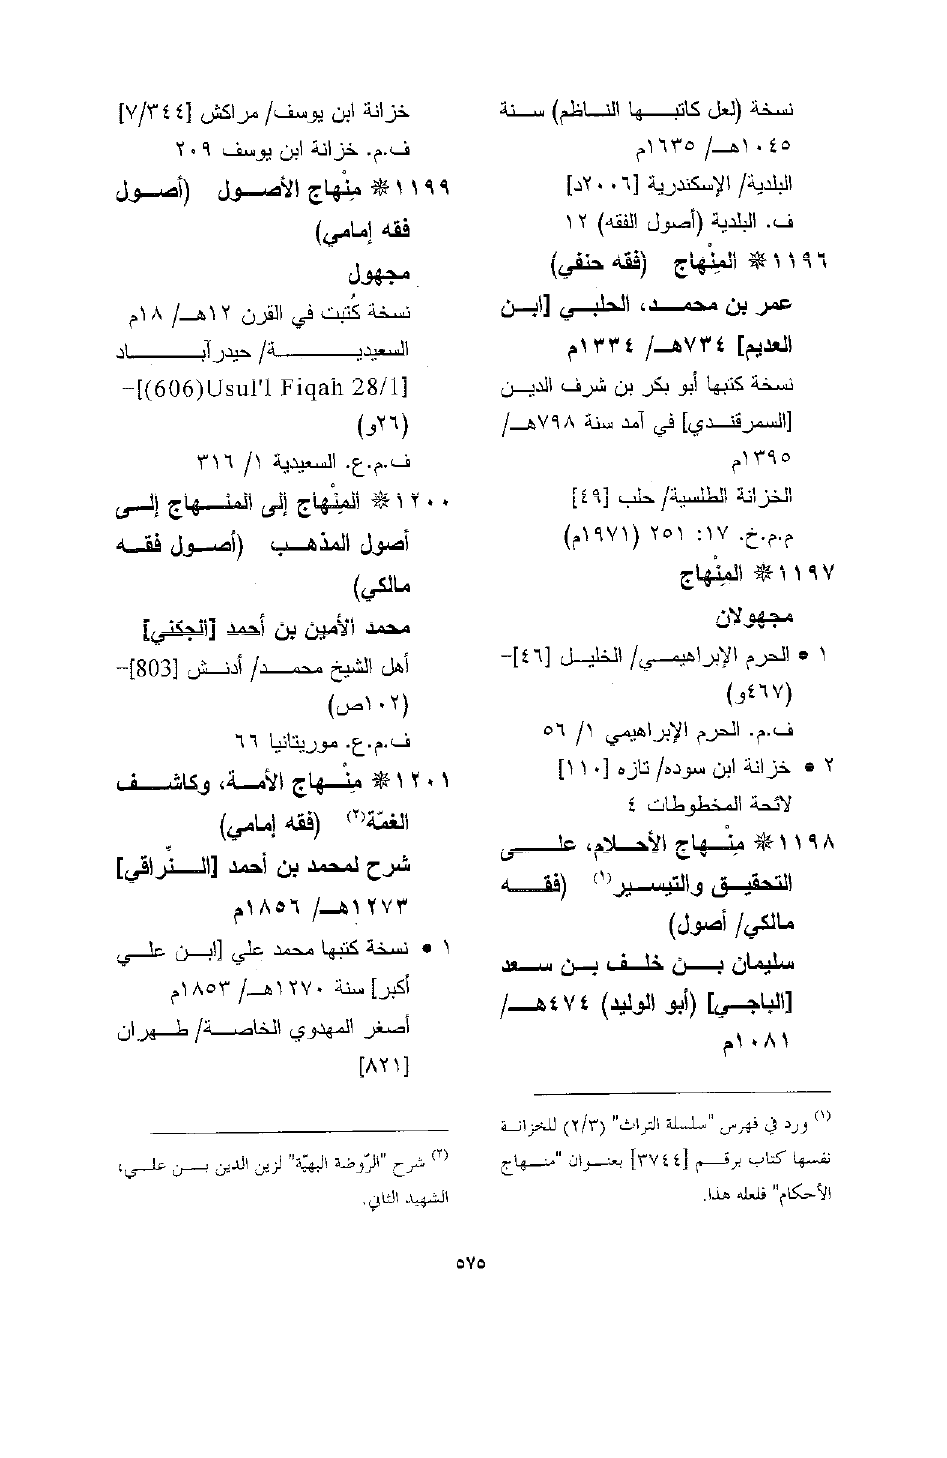 نسخة (لعل كاتبـــها الناظم) ســنة
١٠٤٥هـــ/ ١٦٣٥م
البلدية/ الإسكندرية [٢٠٠٦د]
ف. البلدية (أصول الفقه) ١٢
١١٩٦❊ المِنْهاج (فقه حنفي)
عمر بن محمـــد، الحلبــي [ابــن
العديم] ٧٣٤هـــ/ ١٣٣٤م
نسخة كتبها أبو بكر بن شرف الديــن
[السمرقنــدي] في آمد سنة ٧٩٨هـــ/
١٣٩٥م
الخزانة الطلسية/ حلب [٤٩]
م.م.خ. ١٧: ٢٥١ (١٩٧١م)
١١٩٧❊ المِنْهاج
مجهولان
١ • الحرم الإبراهيمــي/ الخليــل [٤٦]-
(٤٦٧و)
ف.م. الحرم الإبراهيمي ١/ ٥٦
٢ • خزانة ابن سوده/ تازه [١١٠]
لائحة المخطوطات ٤
١١٩٨❊ مِنْــهاج الأحــلام، علــى
التحقيــق والتيســير(١) (فقــه
مالكي/ أصول)
سليمان بــن خلــف بــن ســعد
[الباجــي] (أبو الوليد) ٤٧٤هـــ/
١٠٨١م
(١) ورد في فهرس "سلسلة التراث" (٢/٣) للخزانــة
نفسها كتاب برقــم [٣٧٤٤] بعنــوان "منــهاج
الأحكام" فلعله هذا.
خزانة ابن يوسف/ مراكش [٧/٣٤٤]
ف.م. خزانة ابن يوسف ٢٠٩
١١٩٩❊ مِنْهاج الأصــول (أصــول
فقه إمامي)
مجهول
نسخة كُتبت في القرن ١٢هـــ/ ١٨م
السعيديـــــــة/ حيدرآبـــــــاد
[Usul'l Fiqah 28/1(606)]-
(٢٦و)
ف.م.ع. السعيدية ١/ ٣١٦
١٢٠٠❊ المِنْهاج إلى المنــهاج إلــى
أصول المذهــب (أصــول فقــه
مالكي)
محمد الأمين بن أحمد [الجكني]
أهل الشيخ محمــد/ أدنــش [803]-
(١٠٢ص)
ف.م.ع. موريتانيا ٦٦
١٢٠١❊ مِنْــهاج الأمــة، وكاشــف
الغمّة(٢) (فقه إمامي)
شرح لمحمد بن أحمد [الــنَّراقي]
١٢٧٣هـــ/ ١٨٥٦م
١ • نسخة كتبها محمد علي [ابــن علــي
أكبر] سنة ١٢٧٠هـــ/ ١٨٥٣م
أصغر المهدوي الخاصــة/ طــهران
[٨٢١]
(٢) شرح "الرّوضة البهيّة" لزين الدين بــن علــي،
الشهيد الثاني.
٥٧٥